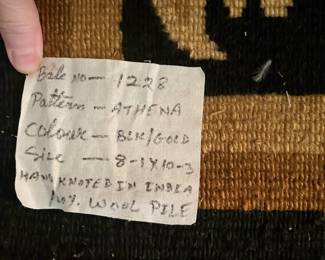 Bale No — 1228
Pattern — ATHENA
Colour — BLK/GOLD
Size — 8-1 X 10-3
HAND KNOTED IN INDIA
100% WOOL PILE